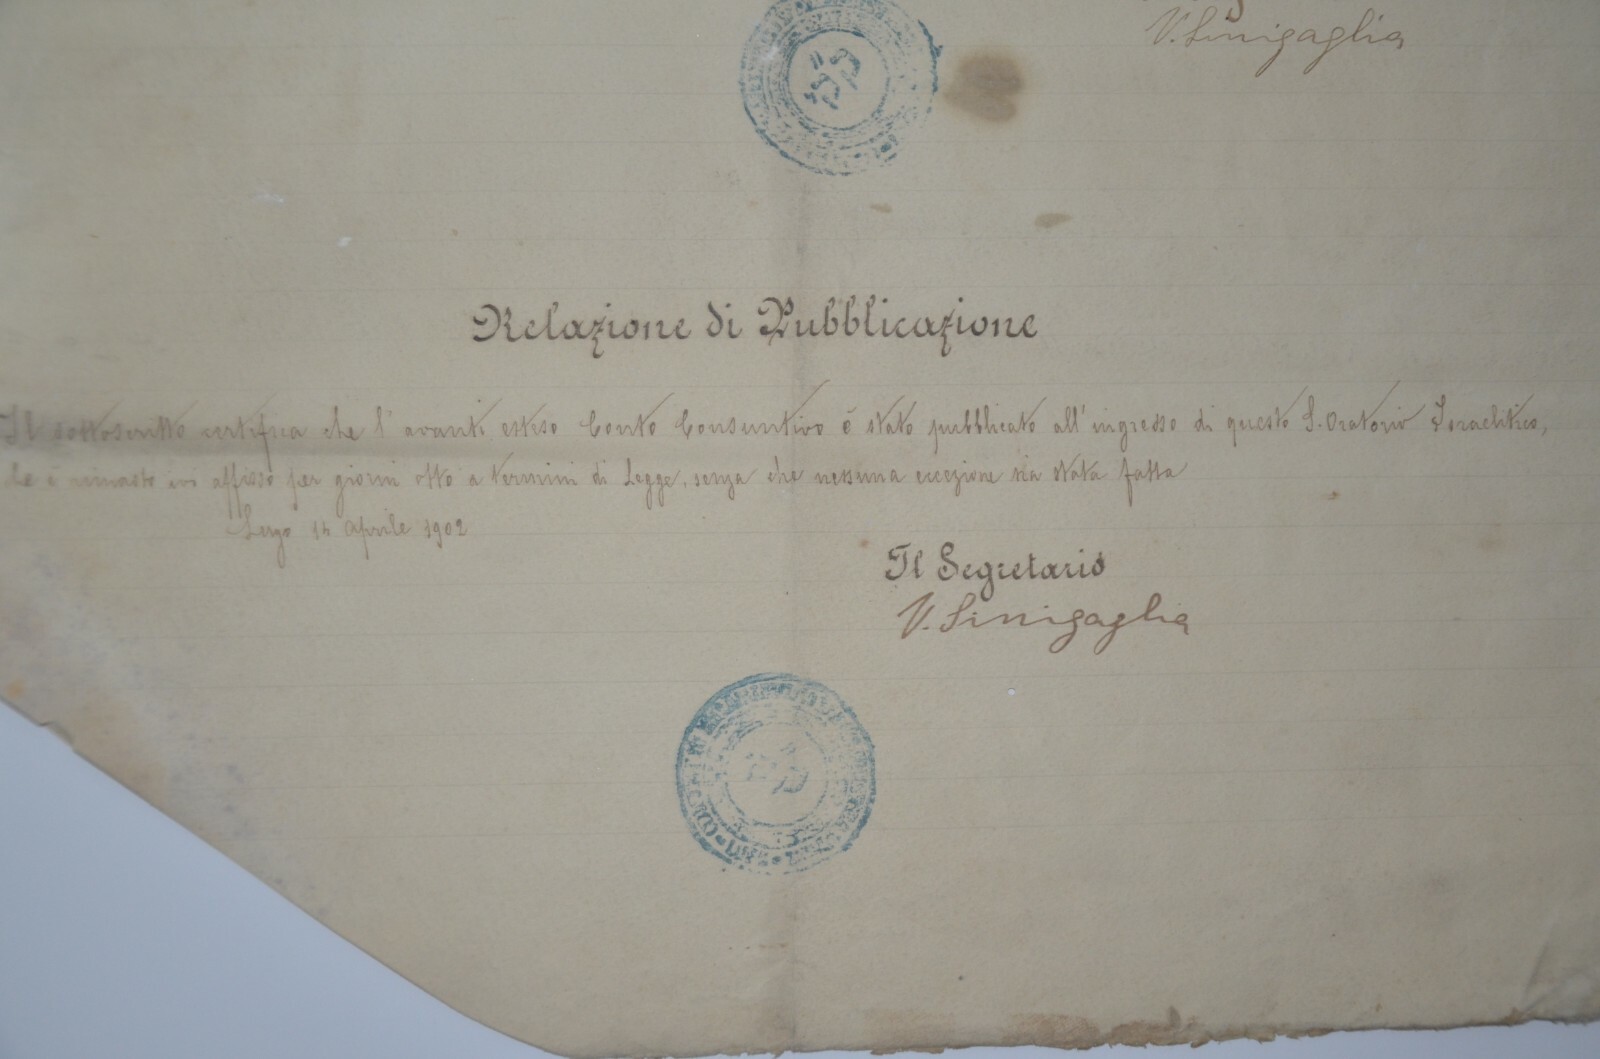 V. Sinigaglia
Relazione di Pubblicazione
Il sottoscritto certifica che l'avanti esteso Conto Consuntivo è stato pubblicato all'ingresso di questo S. Oratorio Israelitico,
che è rimasto ivi affisso per giorni otto a termini di Legge, senza che nessuna eccezione sia stata fatta
Lugo 14 Aprile 1902
Il Segretario
V. Sinigaglia